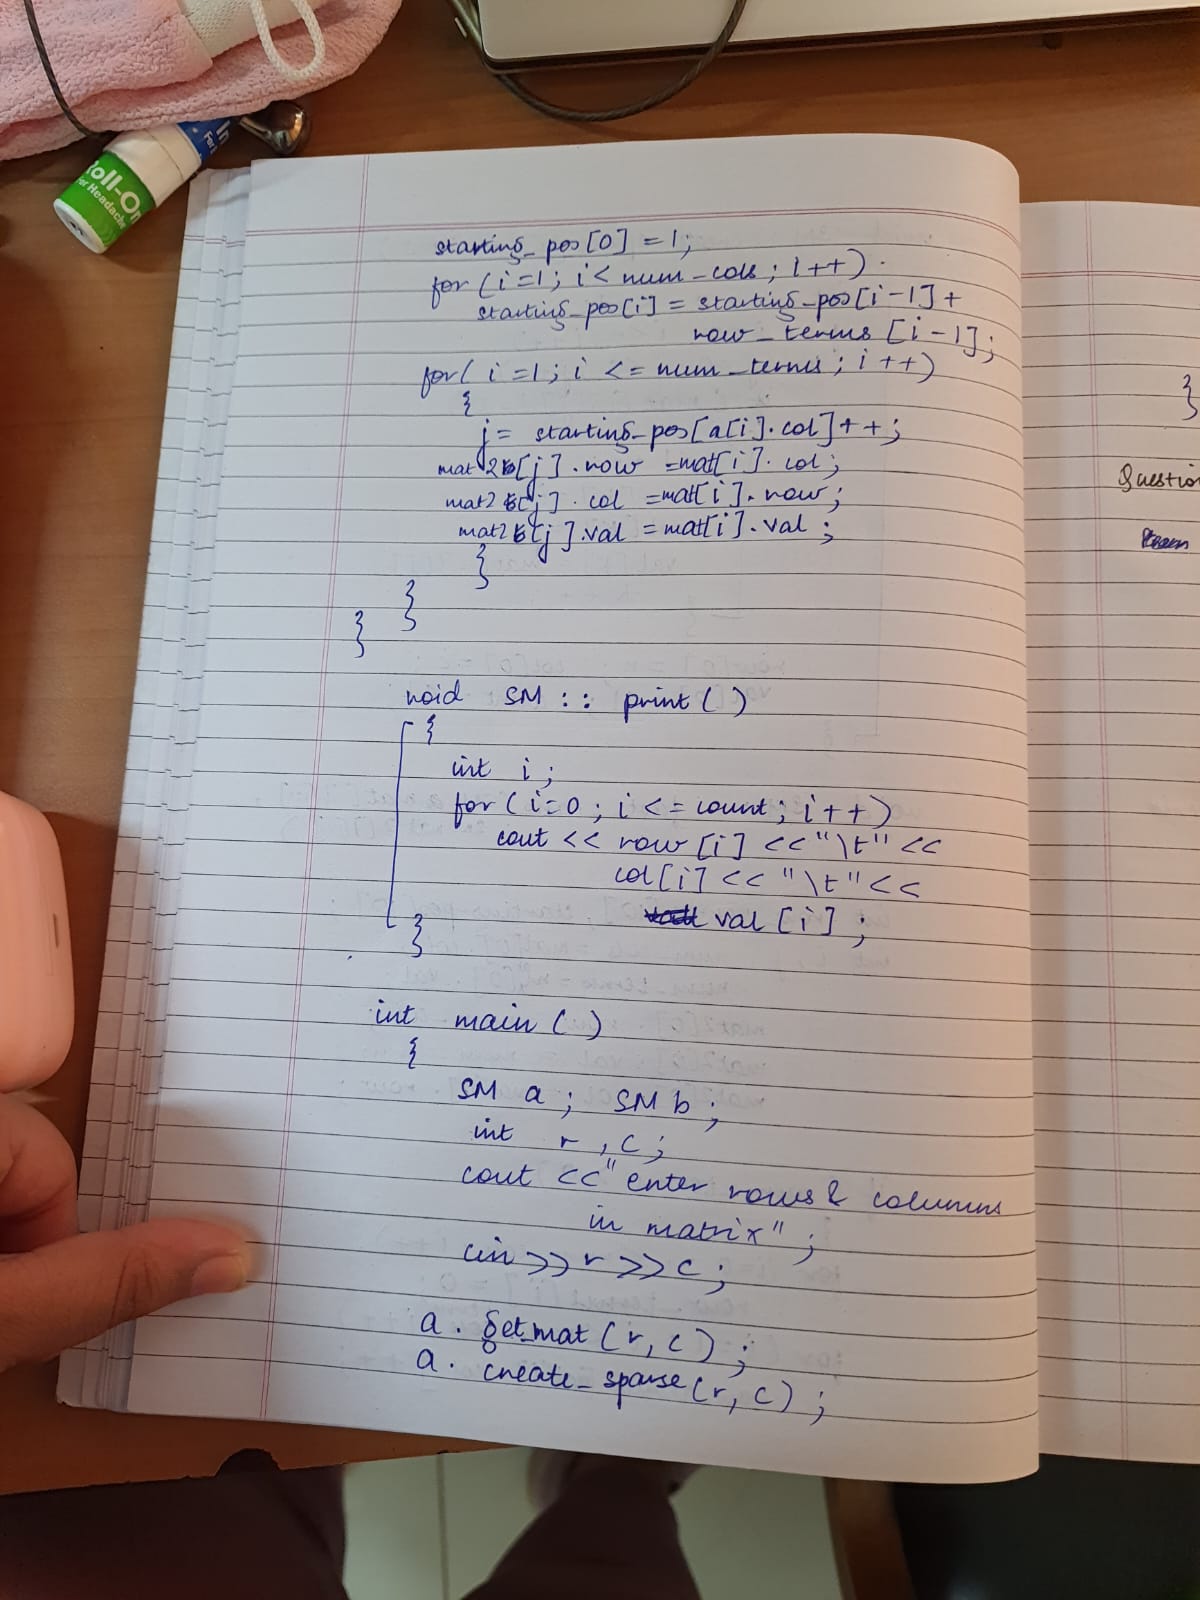 In
For
Roll-On
For Headache
starting_pos[0] = 1;
for (i=1; i< num_cols; i++)
starting_pos[i] = starting_pos[i-1] +
row_terms [i-1];
for( i=1; i <= num_terms; i++)
{
j= starting_pos[a[i].col]++;
mat2[j].row =mat[i].col;
mat2[j].col =mat[i].row;
mat2[j].val =mat[i].val;
}
}
}
void SM :: print ( )
{
int i;
for (i=0; i<= count; i++)
cout << row [i] <<"\t" <<
col[i] << "\t" <<
val [i];
}
int main ( )
{
SM a; SM b;
int r, c;
cout << "enter rows & columns
in matrix";
cin >> r >> c;
a. get_mat (r, c);
a. create_sparse (r, c);
}
Question